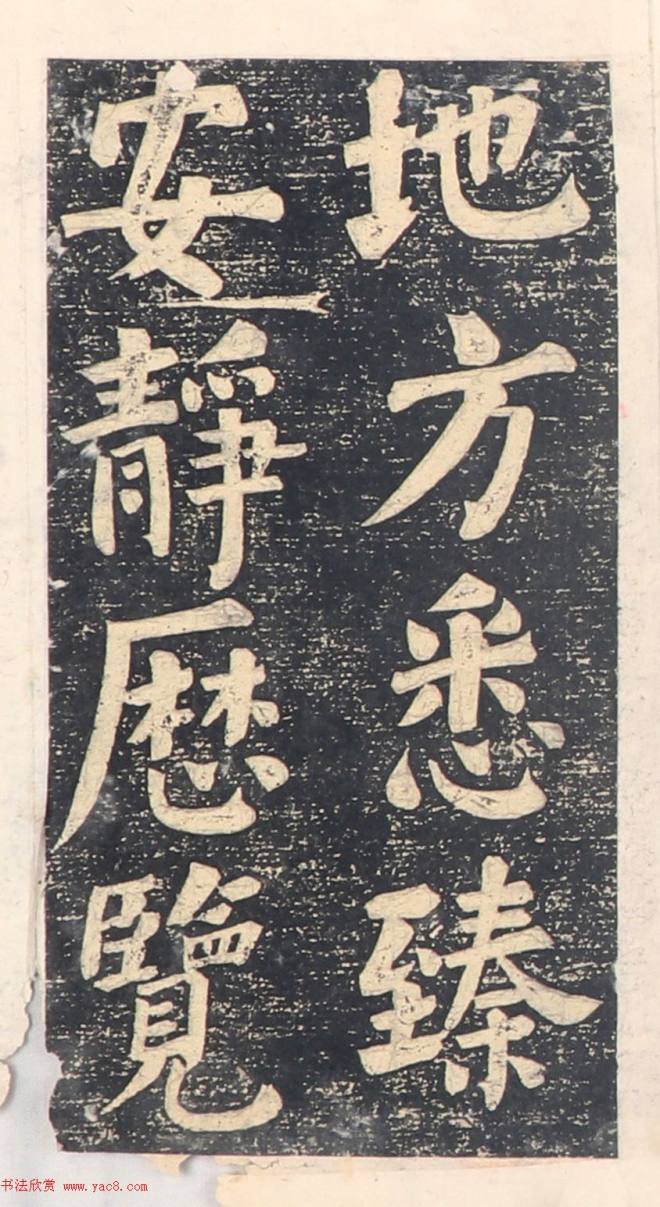 地方悉臻
安靜歷覽
书法欣赏 www.yac8.com